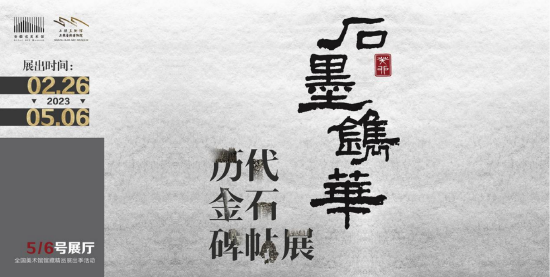 展出时间：
02.26
2023
05.06
石墨鐫華
历代
金石
碑帖展
5/6号展厅
全国美术馆馆藏精品展出季活动